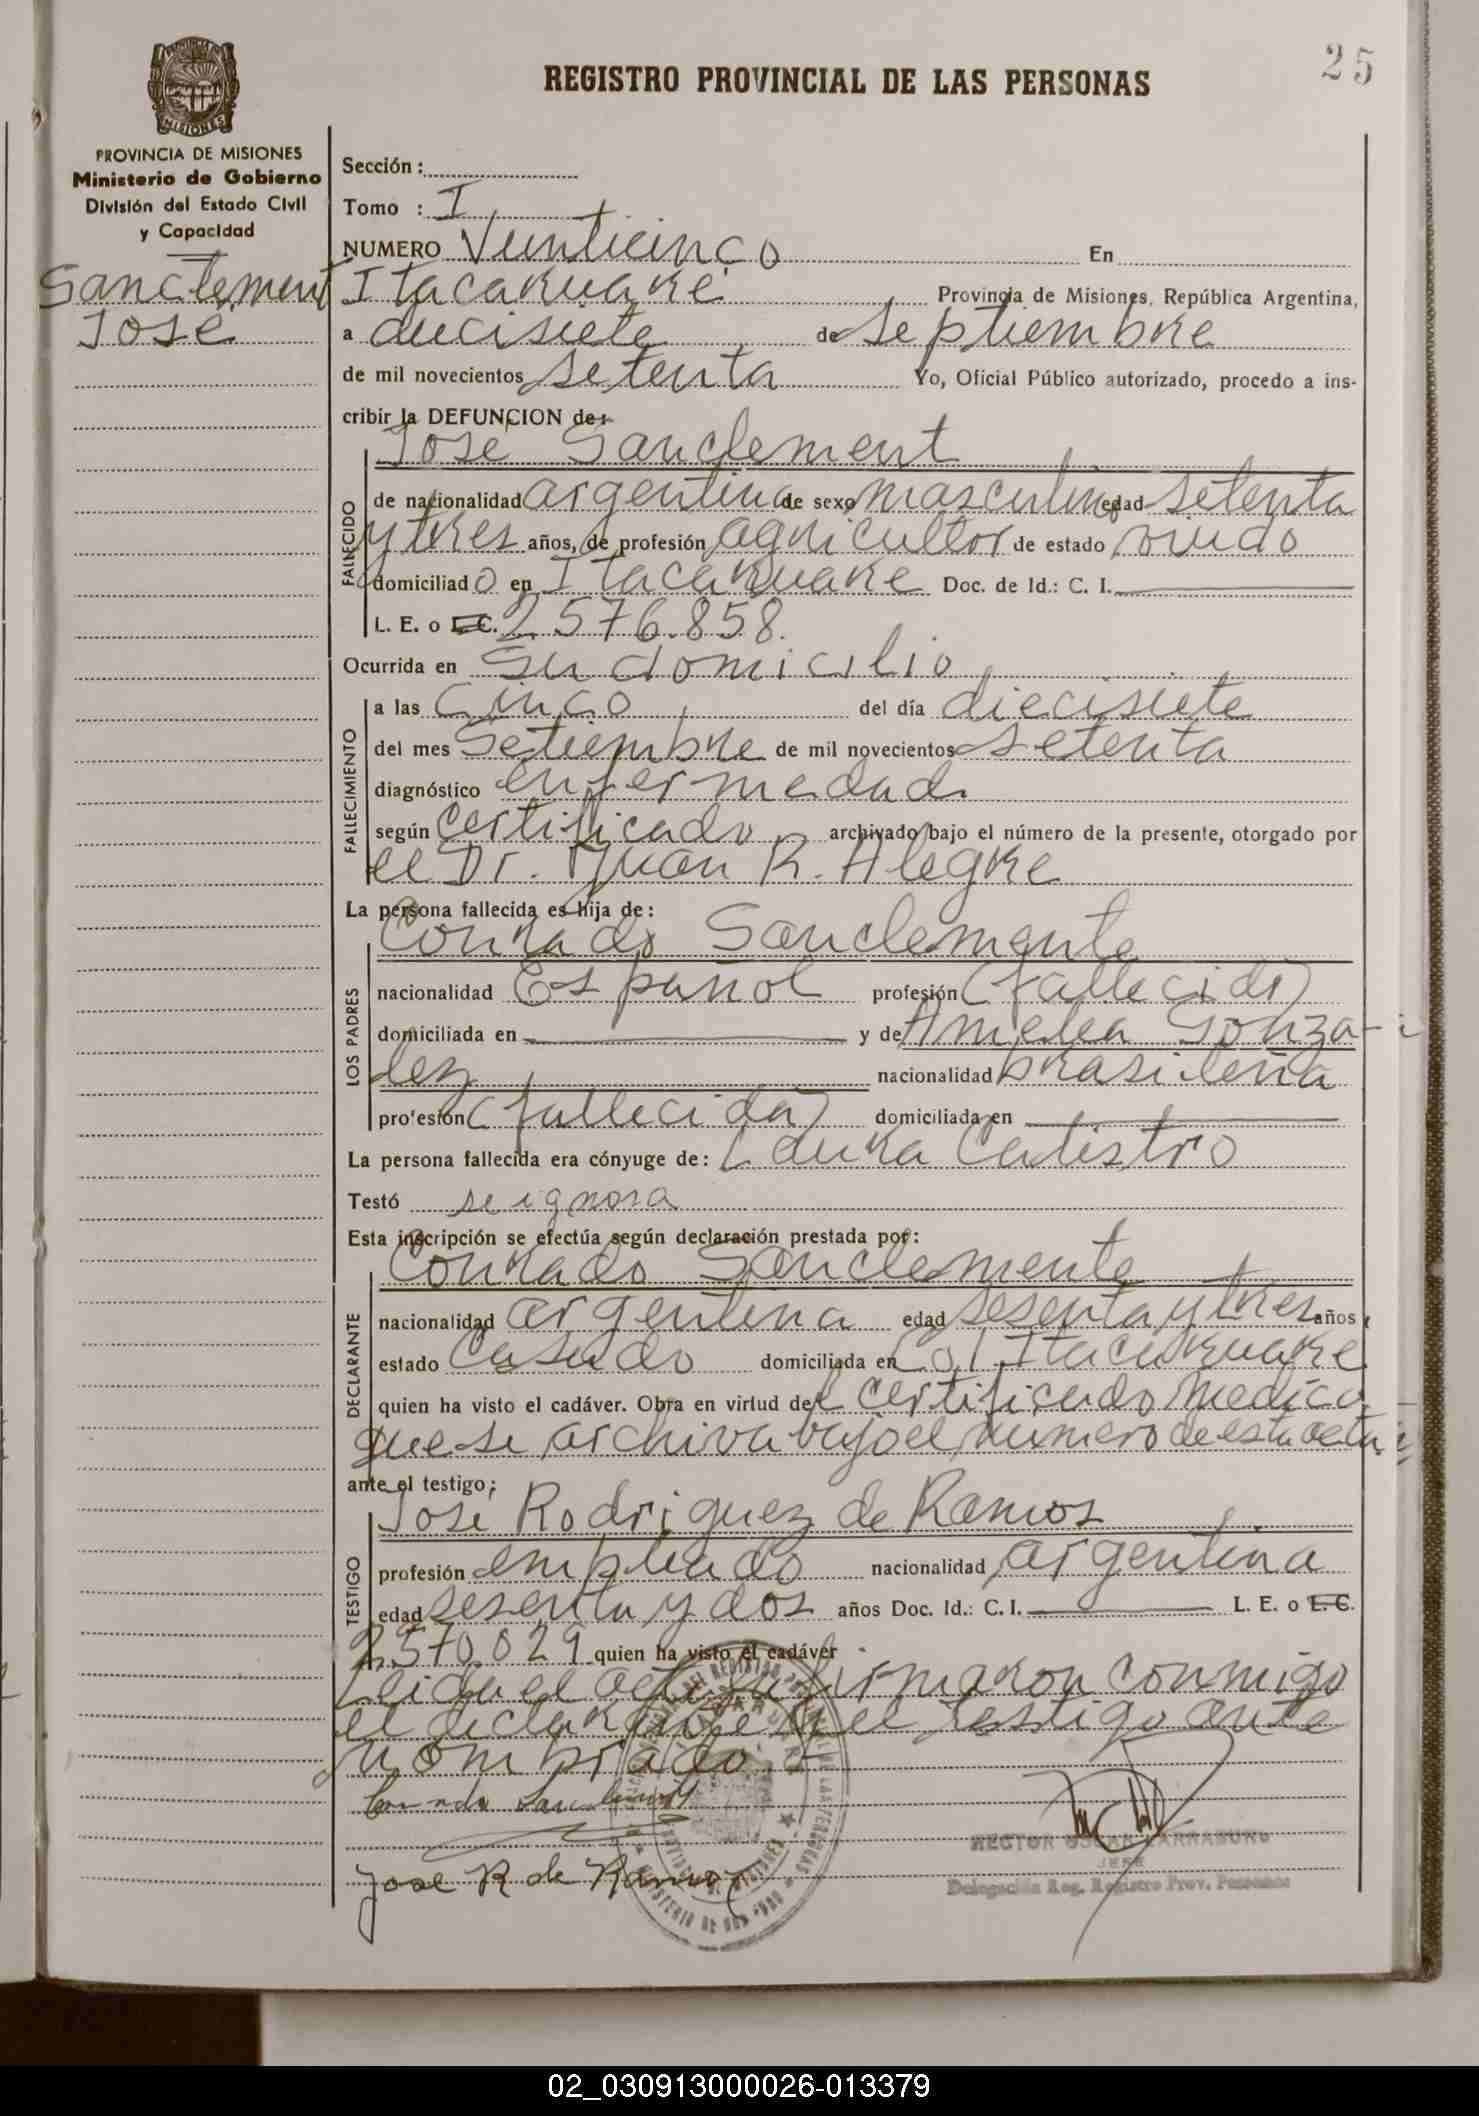 25
REGISTRO PROVINCIAL DE LAS PERSONAS
PROVINCIA DE MISIONES
Ministerio de Gobierno
División del Estado Civil
y Capacidad
Sanclement
José
Sección :
Tomo : I
NUMERO Veinticinco En
Itacaruaré Provincia de Misiones, República Argentina,
a diecisiete de septiembre
de mil novecientos setenta Yo, Oficial Público autorizado, procedo a ins-
cribir la DEFUNCION de:
José Sanclement
FALLECIDO
de nacionalidad argentina de sexo masculino edad setenta
y tres años, de profesión agricultor de estado viudo
domiciliado en Itacaruare Doc. de Id.: C. I.
L. E. o L.C. 2.576.858.
Ocurrida en su domicilio
FALLECIMIENTO
a las cinco del día diecisiete
del mes Setiembre de mil novecientos setenta
diagnóstico enfermedad
según certificado archivado bajo el número de la presente, otorgado por
el Dr. Juan R. Alegre
La persona fallecida es hija de:
Conrado Sanclemente
LOS PADRES
nacionalidad Español profesión (fallecido)
domiciliada en y de Amelea Gonza-
lez nacionalidad brasileña
profesión (fallecida) domiciliada en
La persona fallecida era cónyuge de: Laura Calistro
Testó se ignora
Esta inscripción se efectúa según declaración prestada por:
Conrado Sanclemente
DECLARANTE
nacionalidad argentina edad sesenta y tres años,
estado Casado domiciliada en Col Itacaruare
quien ha visto el cadáver. Obra en virtud del certificado medico
que se archiva bajo el numero de esta acta
ante el testigo:
José Rodriguez de Ramos
TESTIGO
profesión empleado nacionalidad argentina
edad sesenta y dos años Doc. Id.: C. I. L. E. o L.C.
2.570.029 quien ha visto el cadáver
Leida el acta firmaron conmigo
el declarante y el testigo ante
nombrado.-
Conrado Sanclement
Jose R de Ramos
HECTOR OSCAR LARRABURU
JEFE
Delegación Reg. Registro Prov. Personas
02_030913000026-013379